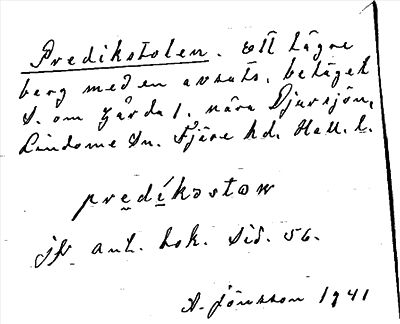 Predikstolen. Ett lägre
berg med en avsats, beläget
S. om Gårda 1. nära Djursjön,
Lindome Sn. Fjäre hd. Hall. l.
predíkəstɷw
jfr ant. bok. Sid. 56.
A. Jönsson 1941